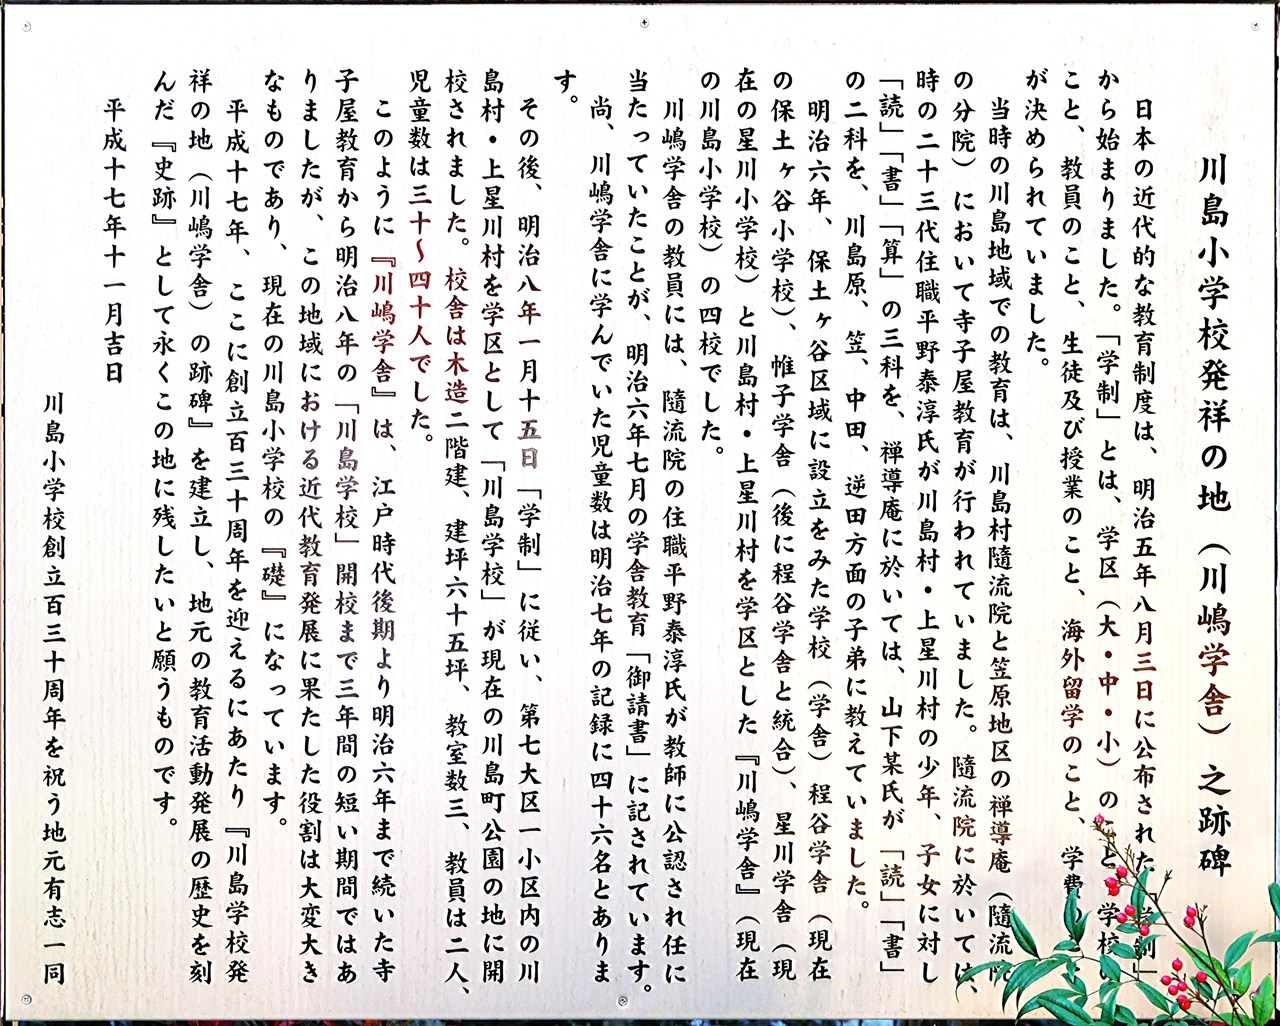 川島小学校発祥の地（川嶋学舎）之跡碑
日本の近代的な教育制度は、明治五年八月三日に公布された「学制」
から始まりました。「学制」とは、学区（大・中・小）のこと、学校の
こと、教員のこと、生徒及び授業のこと、海外留学のこと、学費
が決められていました。
当時の川島地域での教育は、川島村隨流院と笠原地区の禅導庵（隨流院
の分院）において寺子屋教育が行われていました。隨流院に於いては、
時の二十三代住職平野泰淳氏が川島村・上星川村の少年、子女に対し
「読」「書」「算」の三科を、禅導庵に於いては、山下某氏が「読」「書」
の二科を、川島原、笠、中田、逆田方面の子弟に教えていました。
明治六年、保土ヶ谷区域に設立をみた学校（学舎）程谷学舎（現在
の保土ヶ谷小学校）、帷子学舎（後に程谷学舎と統合）、星川学舎（現
在の星川小学校）と川島村・上星川村を学区とした『川嶋学舎』（現在
の川島小学校）の四校でした。
川嶋学舎の教員には、隨流院の住職平野泰淳氏が教師に公認され任に
当たっていたことが、明治六年七月の学舎教育「御請書」に記されています。
尚、川嶋学舎に学んでいた児童数は明治七年の記録に四十六名とありま
す。
その後、明治八年一月十五日「学制」に従い、第七大区一小区内の川
島村・上星川村を学区として「川島学校」が現在の川島町公園の地に開
校されました。校舎は木造二階建、建坪六十五坪、教室数三、教員は二人、
児童数は三十～四十人でした。
このように『川嶋学舎』は、江戸時代後期より明治六年まで続いた寺
子屋教育から明治八年の「川島学校」開校まで三年間の短い期間ではあ
りましたが、この地域における近代教育発展に果たした役割は大変大き
なものであり、現在の川島小学校の『礎』になっています。
平成十七年、ここに創立百三十周年を迎えるにあたり『川島学校発
祥の地（川嶋学舎）の跡碑』を建立し、地元の教育活動発展の歴史を刻
んだ『史跡』として永くこの地に残したいと願うものです。
平成十七年十一月吉日
川島小学校創立百三十周年を祝う地元有志一同